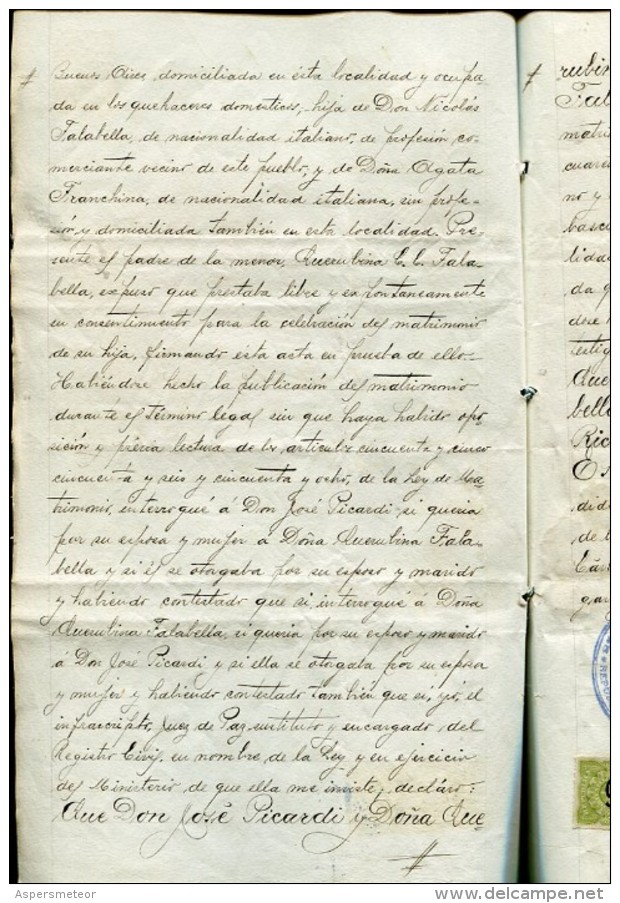 Buenos Aires, domiciliada en ésta localidad y ocupa-
da en los quehaceres domésticos, hija de Don Nicolás
Falabella, de nacionalidad italiano, de profesión co-
merciante vecino de este pueblo, y de Doña Agata
Franchina, de nacionalidad italiana, sin profe-
sión y domiciliada también en esta localidad. Pre-
sente el padre de la menor, Querubina C. C. Fala-
bella, expuso que prestaba libre y expontaneamente
su consentimiento para la celebración del matrimonio
de su hija, firmando ésta acta en prueba de ello.-
Habiéndose hecho la publicación del matrimonio
durante el término legal sin que haya habido opo-
sición y prévia lectura de los articulos cincuenta y cinco
cincuenta y seis y cincuenta y ocho, de la Ley de Ma-
trimonio, interrogué á Don José Picardi, si queria
por su esposa y mujer á Doña Querubina Fala-
bella y si él se otorgaba por su esposo y marido
y habiendo contestado que si, interrogué á Doña
Querubina Falabella, si queria por su esposo y marido
á Don José Picardi y si ella se otorgaba por su esposa
y mujer y habiendo contestado también que si, yó, el
infrascripto, Juez de Paz sustituto y encargado del
Registro Civil, en nombre de la Ley y en ejercicio
del Ministerio de que ella me inviste, declaro:
Que Don José Picardi y Doña Que-
rubin
Fal
matri
cuare
no y
basca
lidad
da q
dose
testig
Que
bella
Ric
Es
did
de l
Cár
gar
Aspersmeteor
©delcampe.net